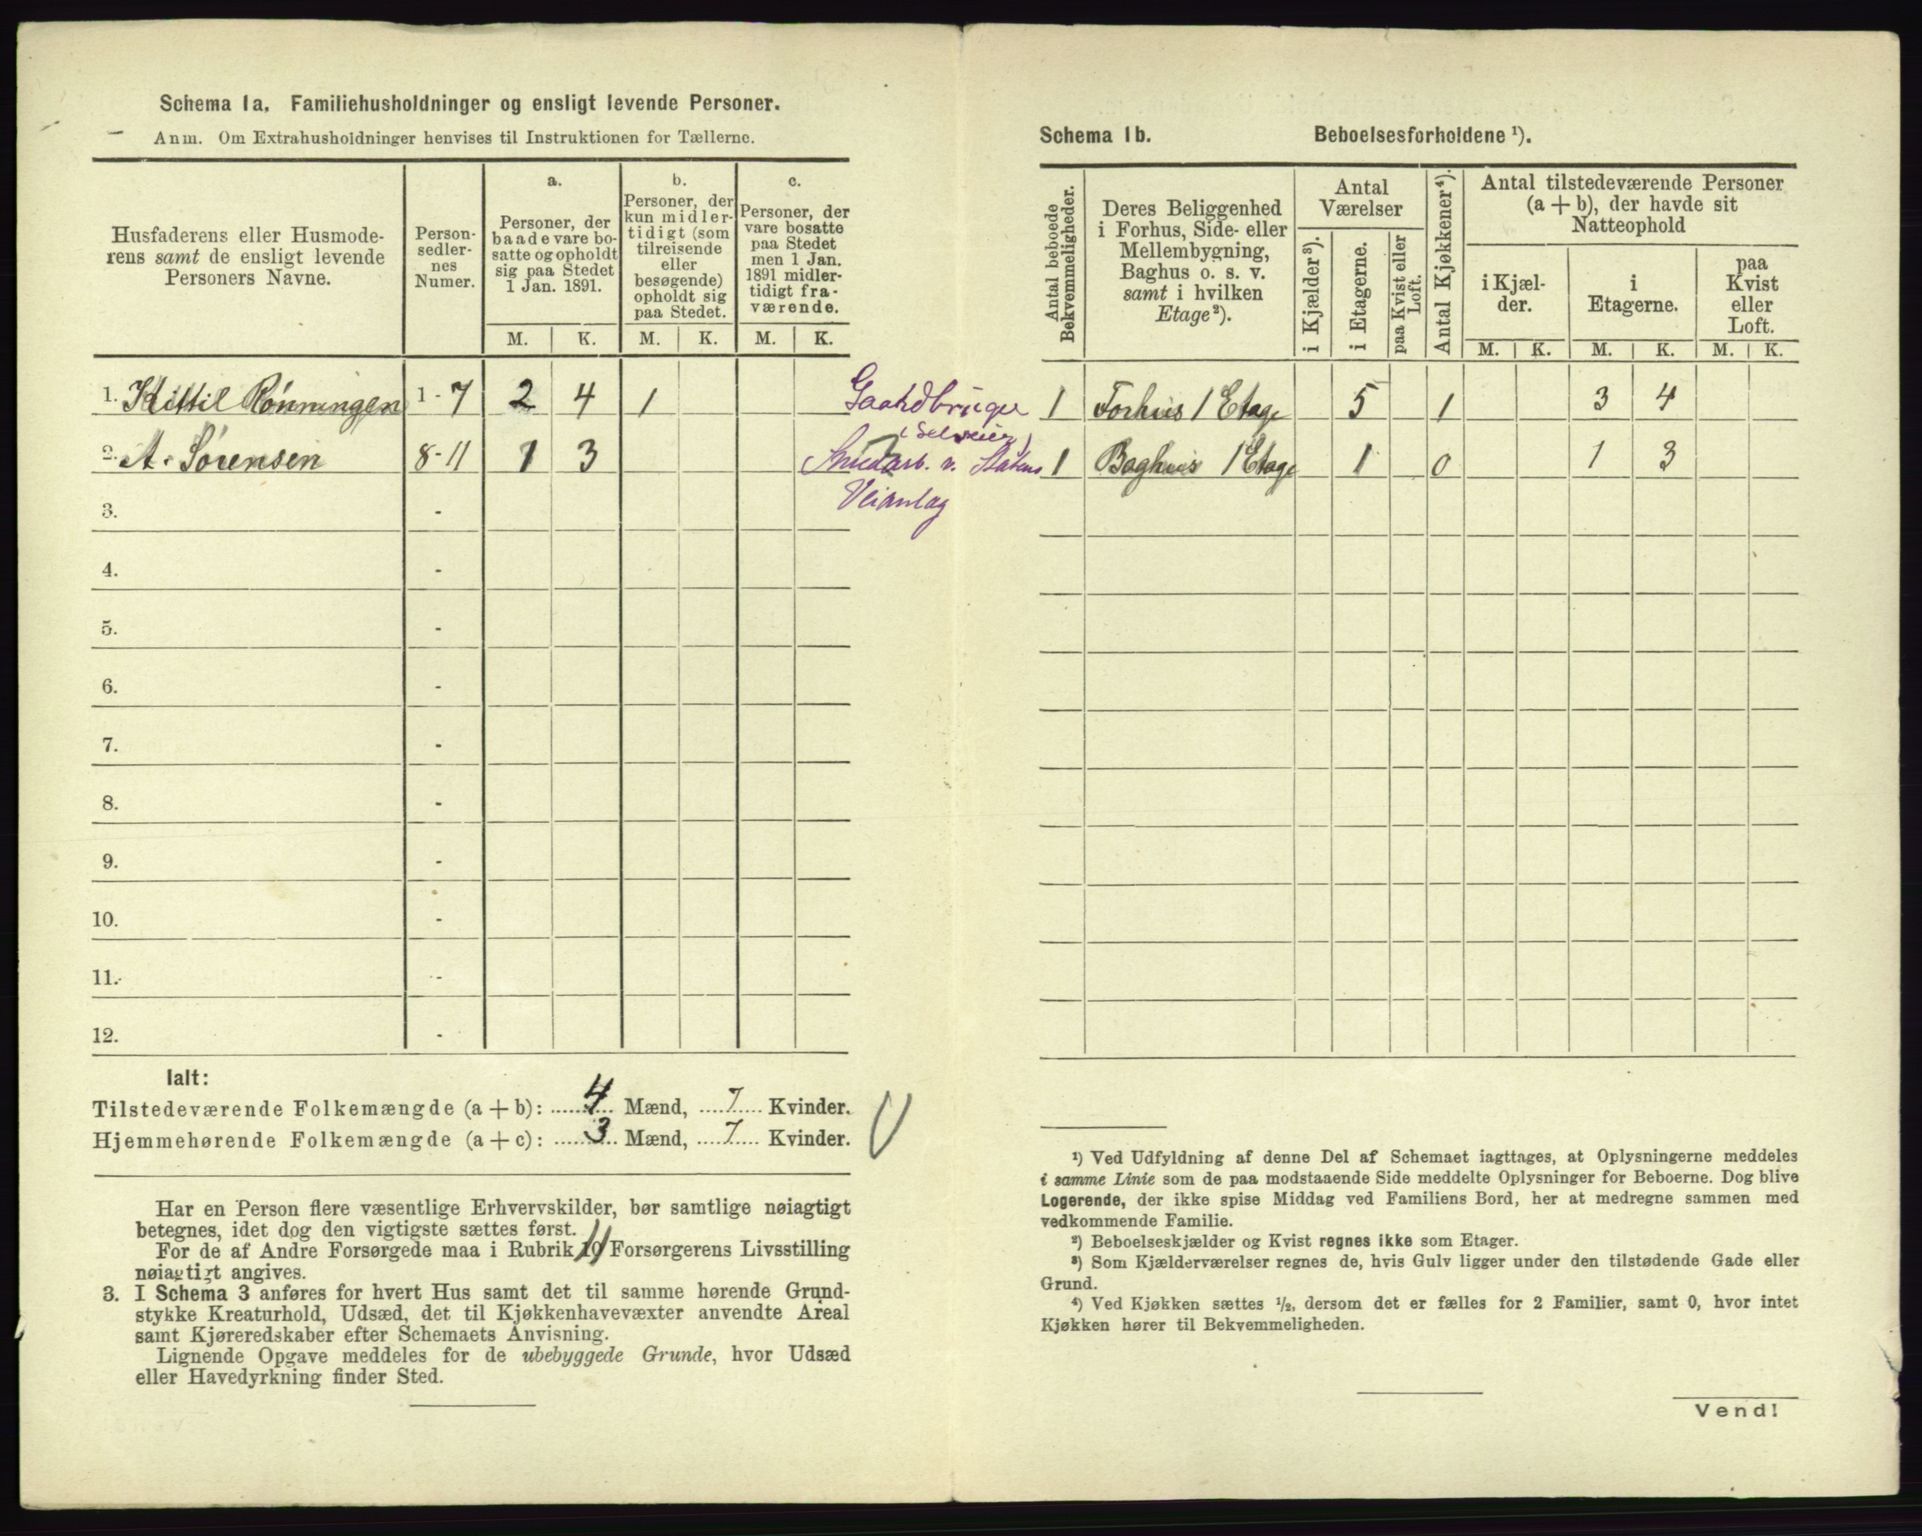 Schema 1a. Familiehusholdninger og ensligt levende Personer.
Anm. Om Extrahusholdninger henvises til Instruktionen for Tællerne.
Husfaderens eller Husmode-
rens samt de ensligt levende
Personers Navne.
Person-
sedler-
nes
Numer.
a.
Personer, der
baade vare bo-
satte og opholdt
sig paa Stedet
1 Jan. 1891.
b.
Personer, der
kun midler-
tidigt (som
tilreisende
eller
besøgende)
opholdt sig
paa Stedet.
c.
Personer, der
vare bosatte
paa Stedet
men 1 Jan.
1891 midler-
tidigt fra-
værende.
M. K. M. K. M. K.
1. Kittil Rønningen 1-7 2 4 1 Gaardbruger
(Selveier)
2. A. Sørensen 8-11 1 3 Smedarb. v. Statens
Veianlæg
3. -
4. -
5. -
6. -
7. -
8. -
9. -
10. -
11. -
12. -
Ialt:
Tilstedeværende Folkemængde (a+b): 4 Mænd, 7 Kvinder.
Hjemmehørende Folkemængde (a+c): 3 Mænd, 7 Kvinder.
Har en Person flere væsentlige Erhvervskilder, bør samtlige nøiagtigt
betegnes, idet dog den vigtigste sættes først.
For de af Andre Forsørgede maa i Rubrik 10 11 Forsørgerens Livsstilling
nøiagtigt angives.
3. I Schema 3 anføres for hvert Hus samt det til samme hørende Grund-
stykke Kreaturhold, Udsæd, det til Kjøkkenhavevæxter anvendte Areal
samt Kjøreredskaber efter Schemaets Anvisning.
Lignende Opgave meddeles for de ubebyggede Grunde, hvor Udsæd
eller Havedyrkning finder Sted.
Schema 1b. Beboelsesforholdene ¹).
Antal beboede
Bekvemmeligheder.
Deres Beliggenhed
i Forhus, Side- eller
Mellembygning,
Baghus o. s. v.
samt i hvilken
Etage²).
Antal
Værelser
i Kjælder³).
i Etagerne.
paa Kvist eller
Loft.
Antal Kjøkkener⁴).
Antal tilstedeværende Personer
(a + b), der havde sit
Natteophold
i Kjæl-
der.
i
Etagerne.
paa
Kvist
eller
Loft.
M. K. M. K. M. K.
1 Forhus 1 Etage 5 1 3 4
1 Baghus 1 Etage 1 0 1 3
¹) Ved Udfyldning af denne Del af Schemaet iagttages, at Oplysningerne meddeles
i samme Linie som de paa modstaaende Side meddelte Oplysninger for Beboerne. Dog blive
Logerende, der ikke spise Middag ved Familiens Bord, her at medregne sammen med
vedkommende Familie.
²) Beboelseskjælder og Kvist regnes ikke som Etager.
³) Som Kjælderværelser regnes de, hvis Gulv ligger under den tilstødende Gade eller
Grund.
⁴) Ved Kjøkken sættes ½, dersom det er fælles for 2 Familier, samt 0, hvor intet
Kjøkken hører til Bekvemmeligheden.
Vend!